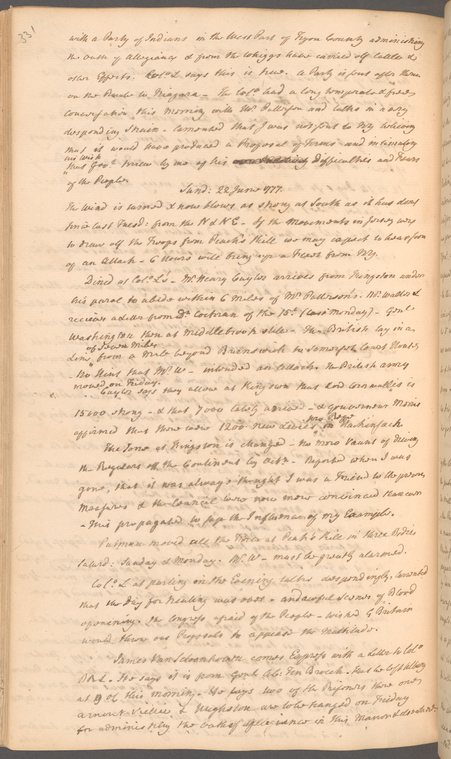 331
with a Party of Indians in the West Part of Tryon County administring
the Oath of Allegiance & from the Whiggs have carried off Cattle &
other Effects. Col. L. says this is true. A Party is sent after them
on the Route to Niagara - The Col. had a long temperate & free
conversation this morning with Mr Patterson and talks in a very
desponding strain. Lamented that I was not sent to NY believing
that it would have produced a Proposal of Terms and intimating
his wish
that Gov. knew by me of his Difficulties and Fears
of the People.
Sund: 22 June 777.
The Wind is turned & now blows as strong at South as it has done
since last Tuesd: from the N & NE. If the Movements in Jersey were
to draw off the Troops from Peak's Kill we may expect to hear soon
of an Attack - 6 Hours will bring up a Fleet from NY.
Dined at Col. L's - Mr Henry Cuyler arrives from Kingston under
his parol to abide within 6 Miles of Mr Patterson's. Mr Watts
receives a Letter from Dr. Cochran of the 15th (last Monday) - Genl.
Washington then at Middlebrook still - The British lay in a
of seven Miles
Line from a Mile beyond Brunswick to Somerset Court House
No Hint that Mr W- intended an Attack. The British army
moved on Friday.
Cuyler says they allow at Kingston that Lord Cornwallis is
15600 strong - & that 7000 lately arrived - & Gouverneur Morris
affirmed that there were 1200 new in Hackinsack
The Tone at Kingston is changed - no more Vaunts of Driving
the Regulars off the Continent by Oct. - Reported when I was
gone, that it was always thought I was a Friend to the present
Measures & the Council were now more convinced than ever
- This propagated to sap the Influence of my Example.
Putnam moved all the Troops at Peak's Kill in three Bodies
Saturd: Sunday & Monday. Mr W- must be greatly alarmed.
Col. L at parting in the Evening talks despondingly, lamented
that the Day for healing was past & and awful Scenes of Blood
approaching. The Congress afraid of the People - wished G Britain
would throw out Proposals to appease the Multitude.
James Van comes Express with a Letter to Col.
R. L. He says it is from Genl. Ab: Ten Broeck. That he left Albany
at 9 oC this morning. He says two of the Prisoners there over
& Hughston are to be hanged on Friday
for administring the Oath of Allegiance in this Manor & elsewhere